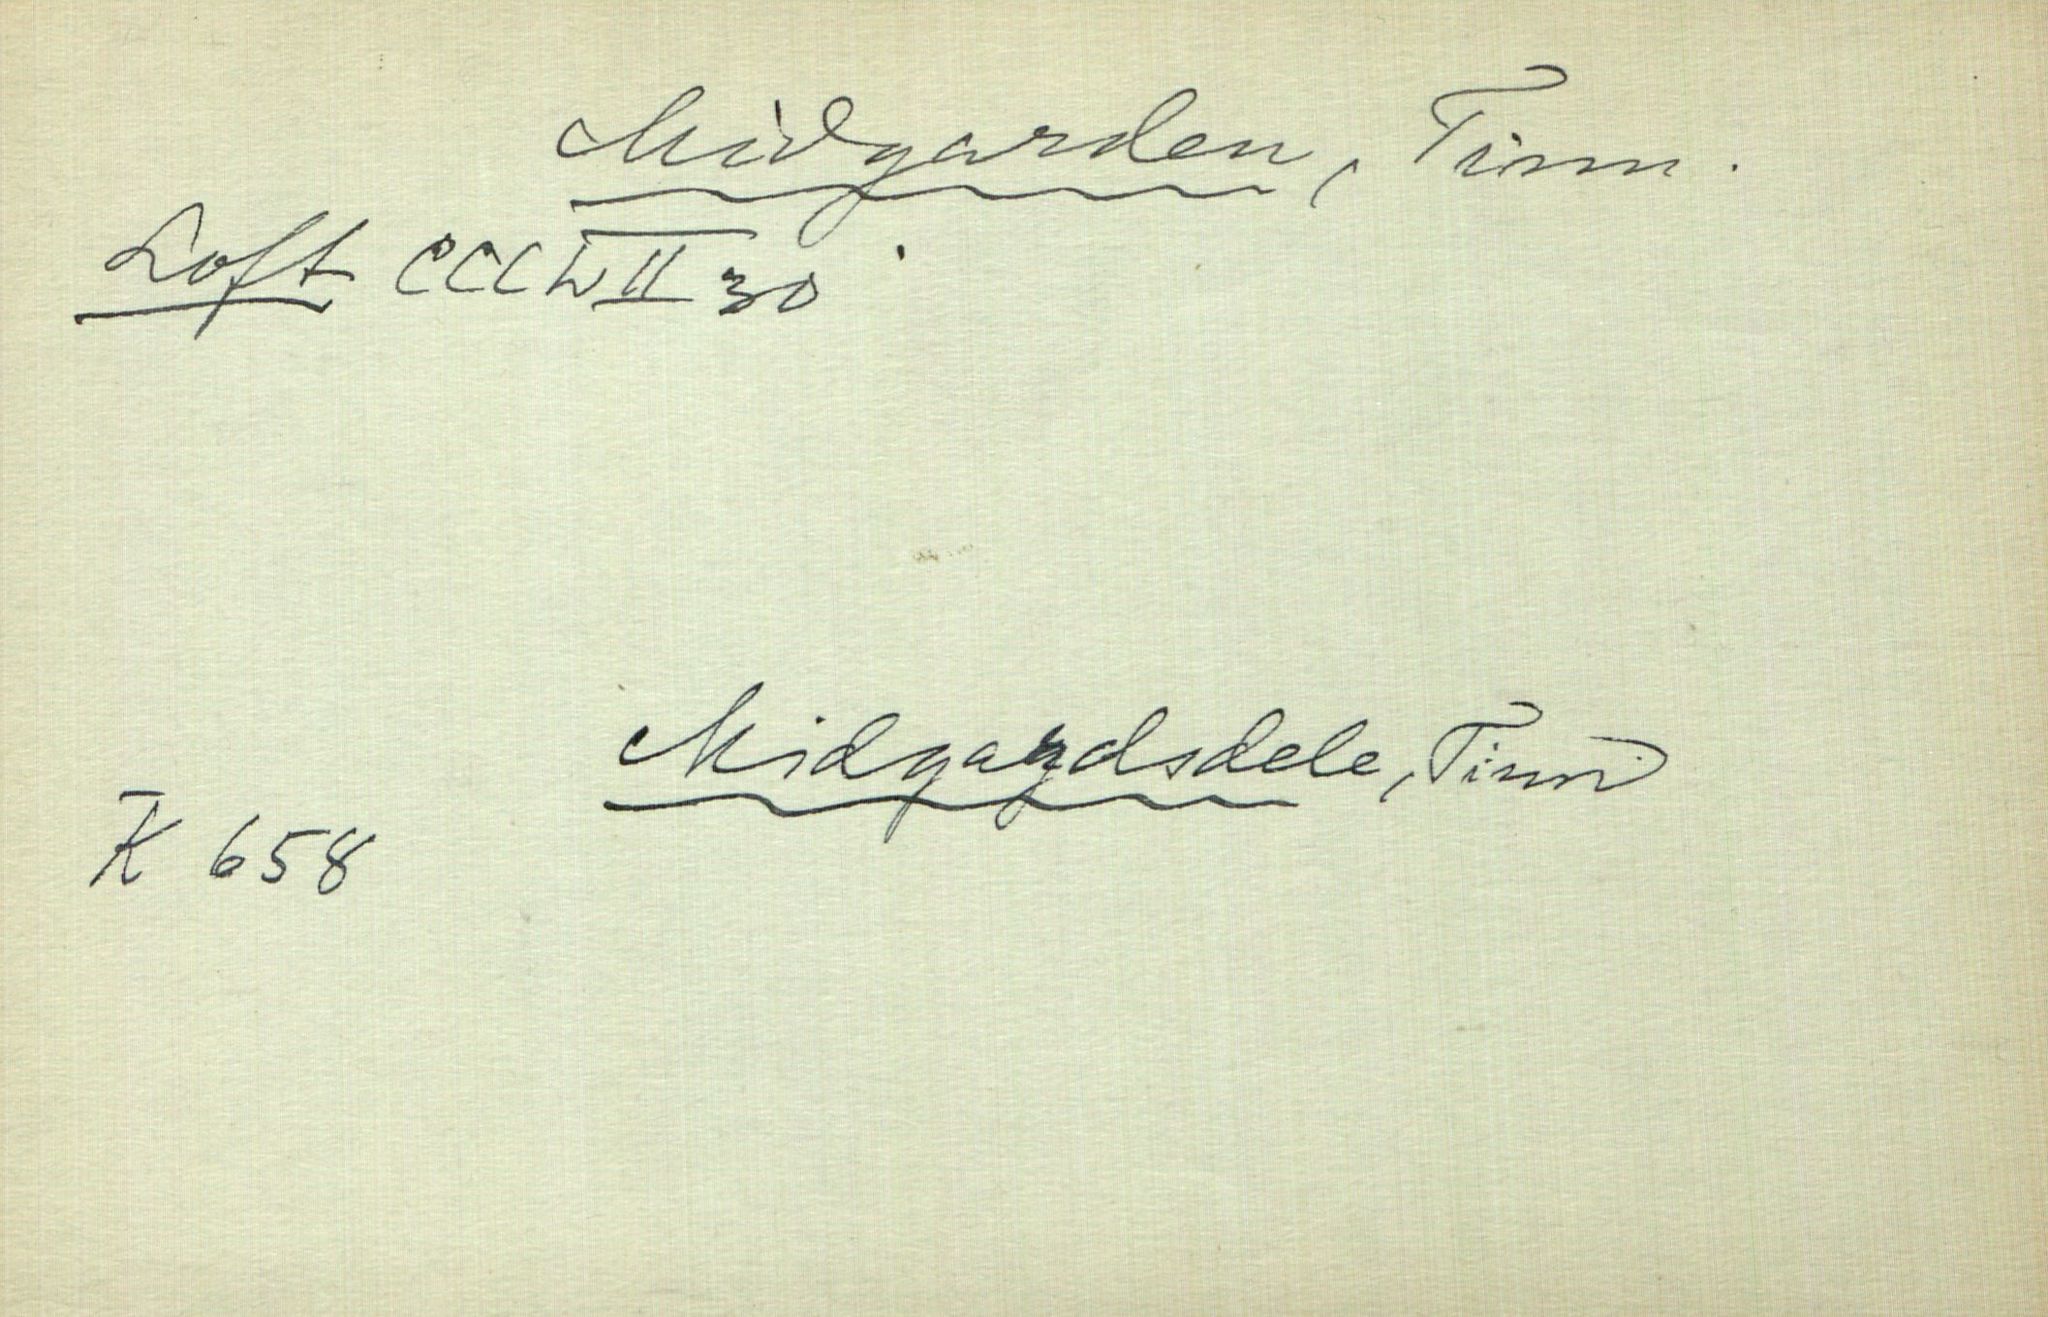 Midgarden, Tinn.
Loft CCCLVII 30
Midgardsdele, Tinn
K 658